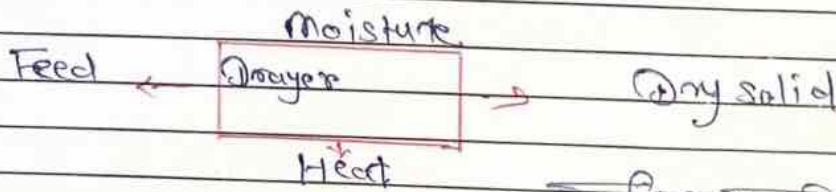 Moisture
Feed Drayer Dry solid
Heat